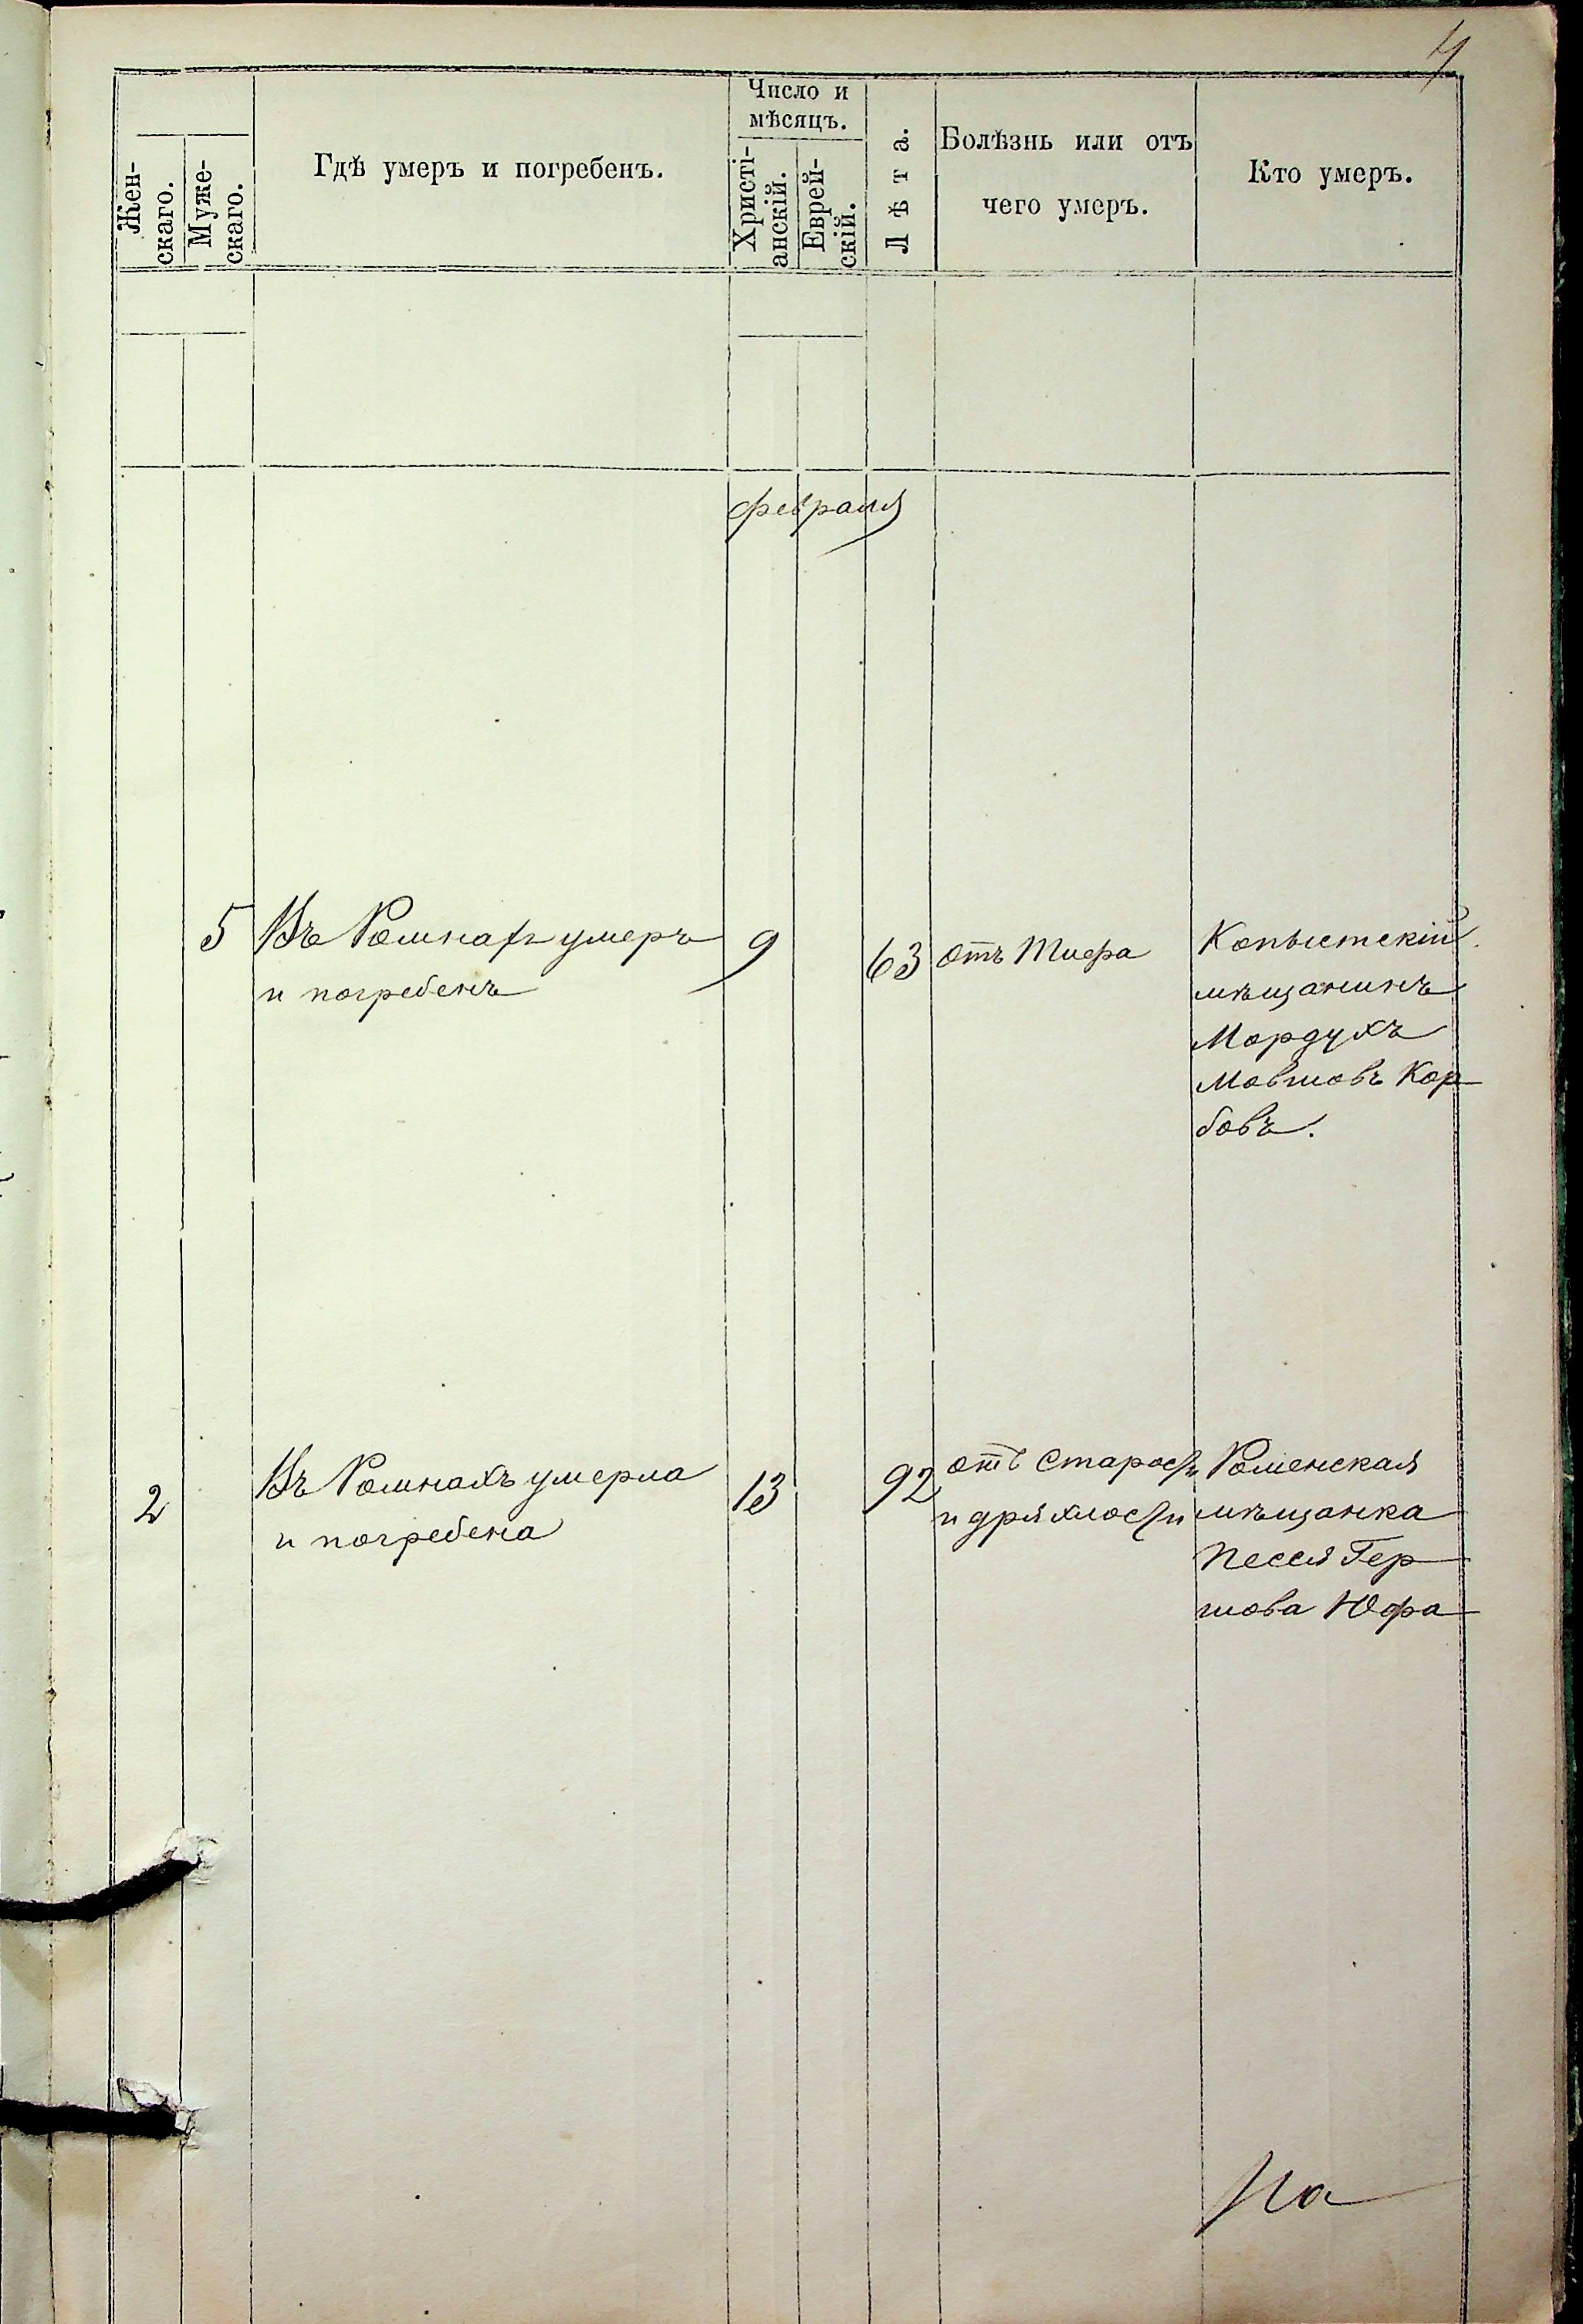 4
Жен-
скаго.
Муже-
скаго.
Гдѣ умеръ и погребенъ.
Число и
мѣсяцъ.
Христі-
анскій.
Еврей-
скій.
Лѣта.
Болѣзнь или отъ
чего умеръ.
Кто умеръ.
февраля
5 Въ Ромнахъ умеръ
и погребенъ
9
63
отъ Тифа
Копысткій
мѣщанинъ
Мордухъ
Мовшовъ Кор
бовъ.
2
Въ Ромнахъ умерла
и погребена
13
92
отъ Старости
и дряхлости
Роменская
мѣщанка
Песся Гер
шова Юфа
На